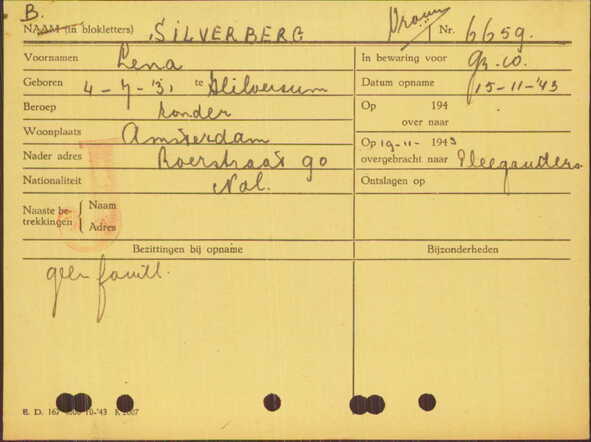 B.
NAAM (in blokletters) SILVERBERG Vrouw Nr. 6659.
Voornamen Lena In bewaring voor
Geboren 4-7-'31 te Hilversum Datum opname 15-11-'43
Beroep zonder Op 194
over naar
Woonplaats Amsterdam
Op 19-11- 1943
Nader adres Roerstraat 90 overgebracht naar Pleegouders
Nationaliteit Ned. Ontslagen op
Naaste be-
trekkingen
Naam
Adres
Bezittingen bij opname Bijzonderheden
geen